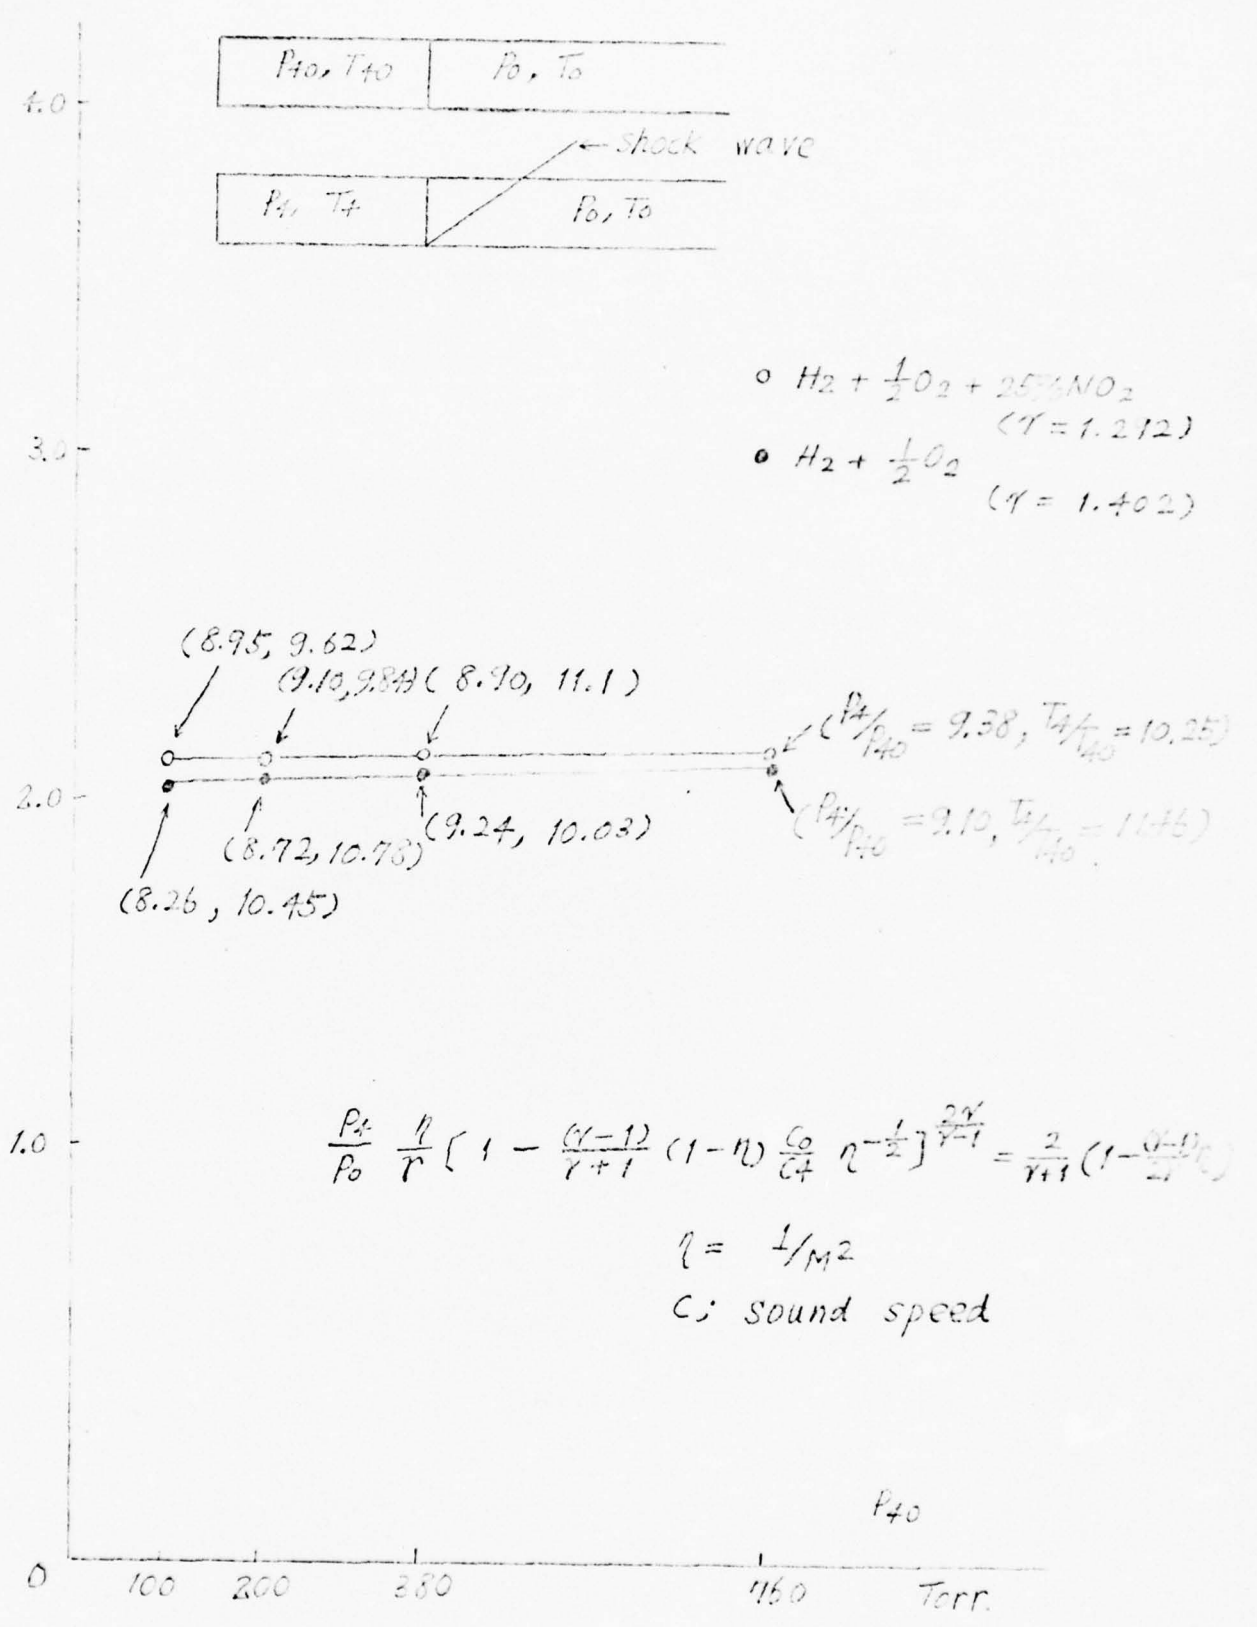 P₄₀, T₄₀ P₀, T₀
4.0
← shock wave
P₄, T₄ P₀, T₀
○ H₂ + ½O₂ + 25%NO₂
(γ = 1.292)
3.0
● H₂ + ½O₂
(γ = 1.402)
(8.95, 9.62)
(9.10, 9.84) (8.90, 11.1)
(P₄/P₄₀ = 9.38, T₄/T₄₀ = 10.25)
2.0
(P₄/P₄₀ = 9.10, T₄/T₄₀ = 11.46)
(8.72, 10.78) (9.24, 10.03)
(8.26, 10.45)
1.0
P₄/P₀ η/γ [1 - (γ-1)/(γ+1) (1-η) C₀/C₄ η^(-1/2)]^(2γ/(γ-1)) = 2/(γ+1) (1 - (γ-1)/2γ η)
η = 1/M²
C; sound speed
P₄₀
0 100 200 380 760 Torr.